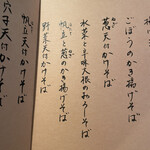 ごぼうのかき揚げそば
萬天付けかけそば
水菜と辛味大根のおろしそば
帆立と葱のかき揚げそば
野菜天付かけそば
帆立天付かけそば
穴子天付かけそば